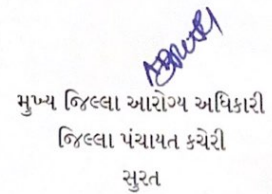 મુખ્ય જિલ્લા આરોગ્ય અધિકારી
જિલ્લા પંચાયત કચેરી
સુરત